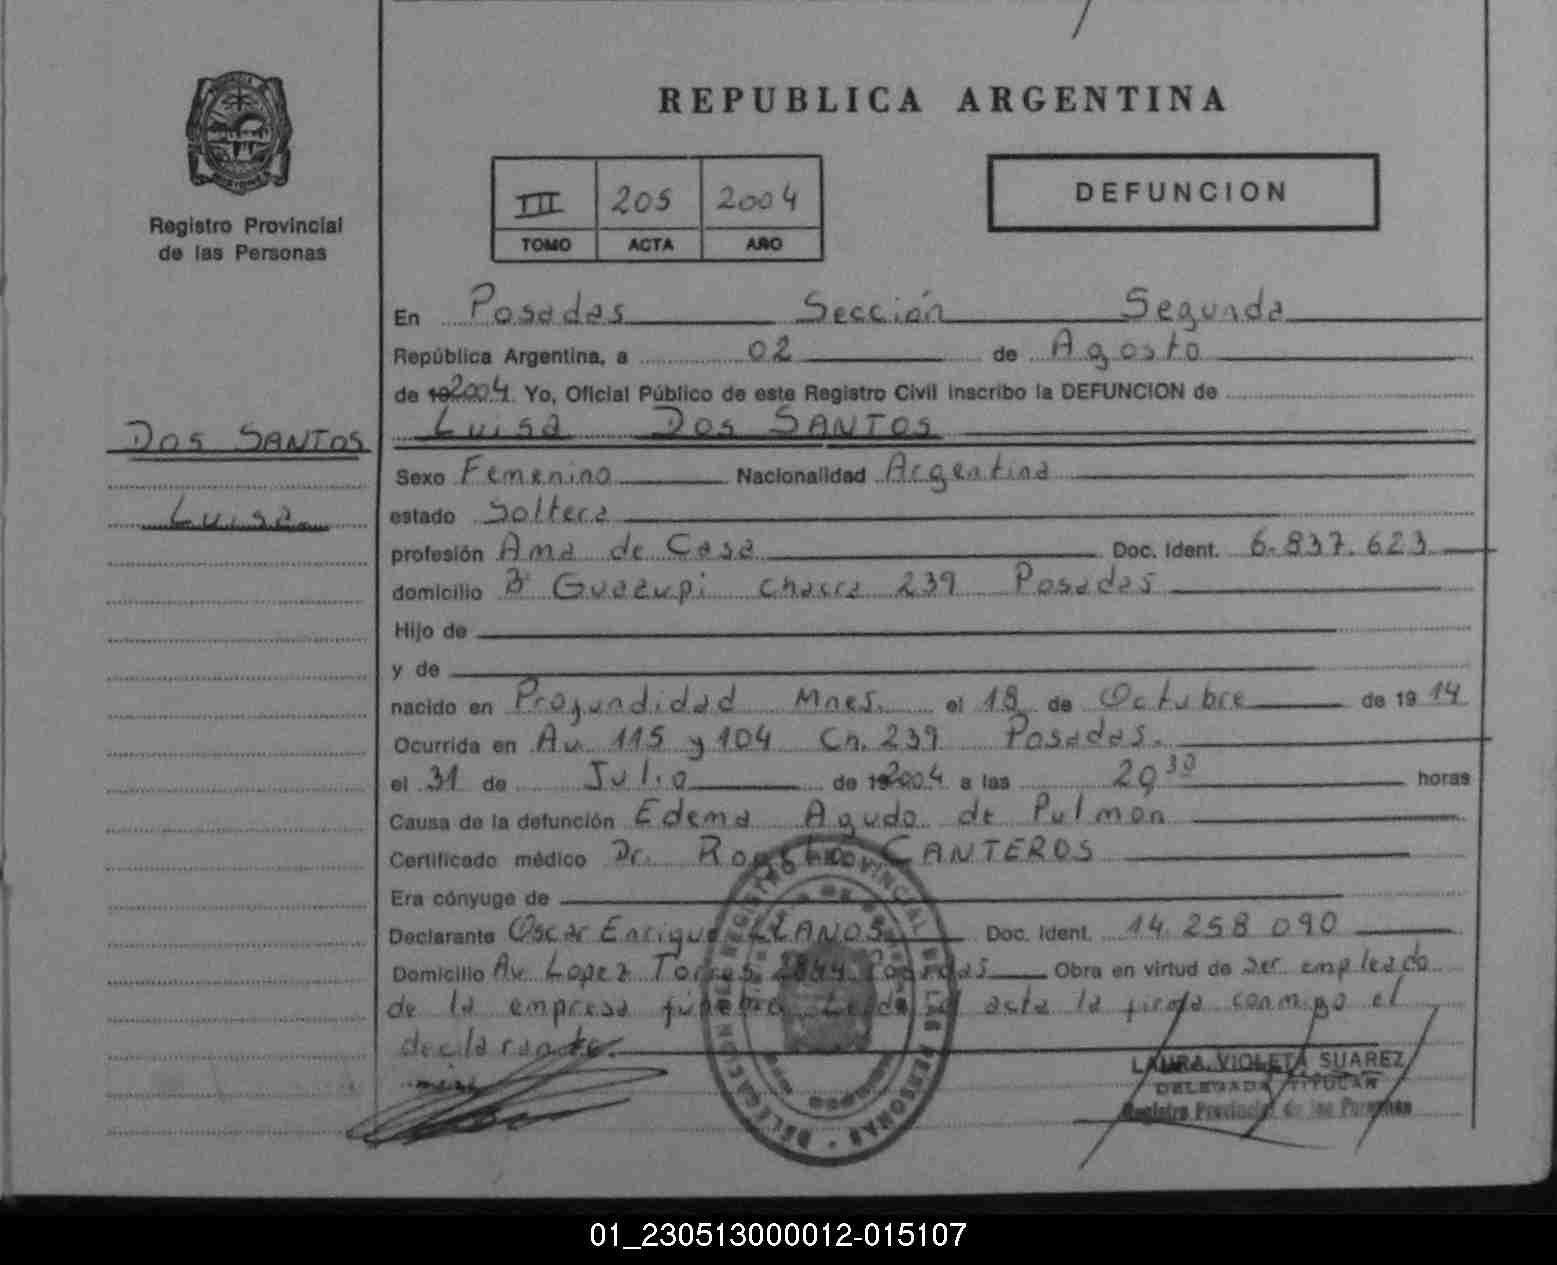 REPUBLICA ARGENTINA
Registro Provincial
de las Personas
III 205 2004
TOMO ACTA AÑO
DEFUNCION
DOS SANTOS
Luisa
En Posadas Sección Segunda
República Argentina, a 02 de Agosto
de 192004. Yo, Oficial Público de este Registro Civil inscribo la DEFUNCION de
Luisa DOS SANTOS
Sexo Femenino Nacionalidad Argentina
estado Soltera
profesión Ama de Casa Doc. Ident. 6.837.623
domicilio Bº Guazupi chacra 239 Posadas
Hijo de
y de
nacido en Profundidad Mnes. el 18 de Octubre de 1914
Ocurrida en Av. 115 y 104 Ch. 239 Posadas.
el 31 de Julio de 192004 a las 20 30 horas
Causa de la defunción Edema Agudo de Pulmon
Certificado médico Dr. CANTEROS
Era cónyuge de
Declarante Oscar Enrique LLANOS Doc. Ident. 14.258 090
Domicilio Av. Lopez Torres Posadas Obra en virtud de ser empleado
de la empresa fúnebre. Leida el acta la firma conmigo el
declarante.
LAURA VIOLETA SUAREZ
DELEGADA TITULAR
Registro Provincial de las Personas
DELEGACION REGISTRO PROVINCIAL DE LAS PERSONAS
01_230513000012-015107